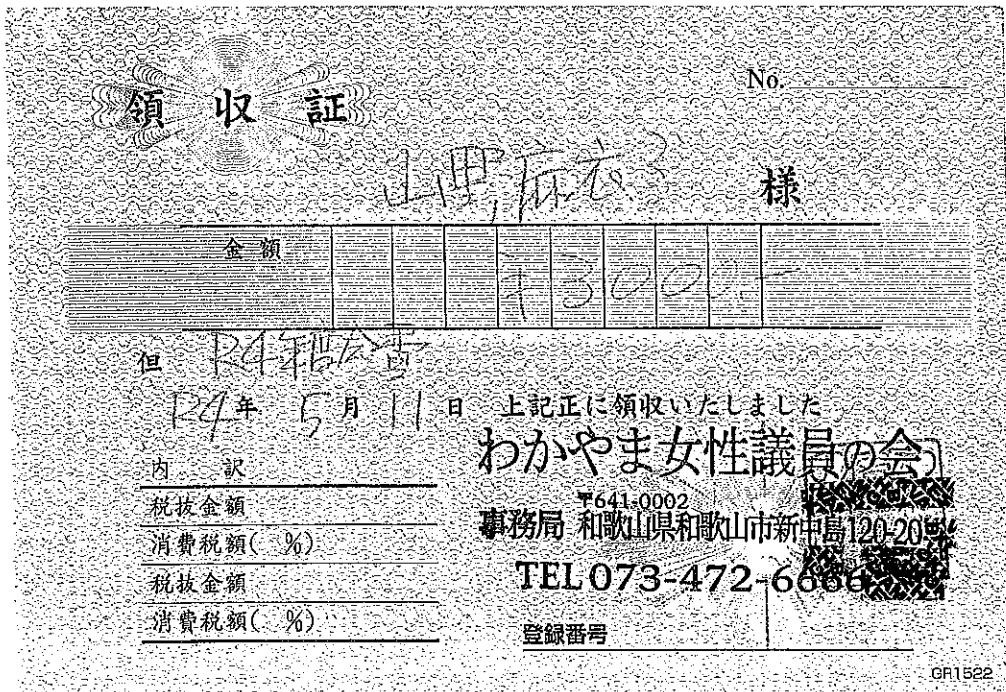 領 収 証
No.
山野麻衣子 様
金 額
¥3000-
但 R4年会費
R4年 5月 11日 上記正に領収いたしました
わかやま女性議員の会
〒641-0002
事務局 和歌山県和歌山市新中島120-20
TEL 073-472-6666
内 訳
税抜金額
消費税額( %)
税抜金額
消費税額( %)
登録番号
GR1522